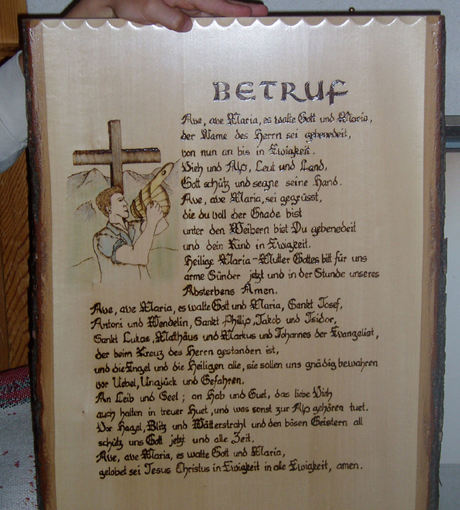 BETRUF
Ave, ave Maria, es walte Gott und Maria,
der Name des Herrn sei gebenedeit,
von nun an bis in Ewigkeit.
Vieh und Alp, Leut und Land,
Gott schütz und segne seine Hand.
Ave, ave Maria, sei gegrüsst,
die du voll der Gnade bist
unter den Weibern bist Du gebenedeit
und dein Kind in Ewigkeit.
Heilige Maria - Mutter Gottes bitt für uns
arme Sünder jetzt und in der Stunde unseres
Absterbens Amen.
Ave, ave Maria, es walte Gott und Maria, Sankt Josef,
Antoni und Wendelin, Sankt Philip, Jakob und Isidor,
Sankt Lukas, Matthäus und Markus und Johannes der Evangelist,
der beim Kreuz des Herrn gestanden ist,
und die Engel und die Heiligen alle, sie sollen uns gnädig bewahren
vor Uebel, Unglück und Gefahren,
An Leib und Seel; an Hab und Guet, das liebe Vieh
auch halten in treuer Huet, und was sonst zur Alp gehören tuet.
Vor Hagel, Blitz und Wätterstrahl und den bösen Geistern all
schütz uns Gott jetzt und alle Zeit.
Ave, ave Maria, es walte Gott und Maria,
gelobet sei Jesus Christus in Ewigkeit in alle Ewigkeit, amen.